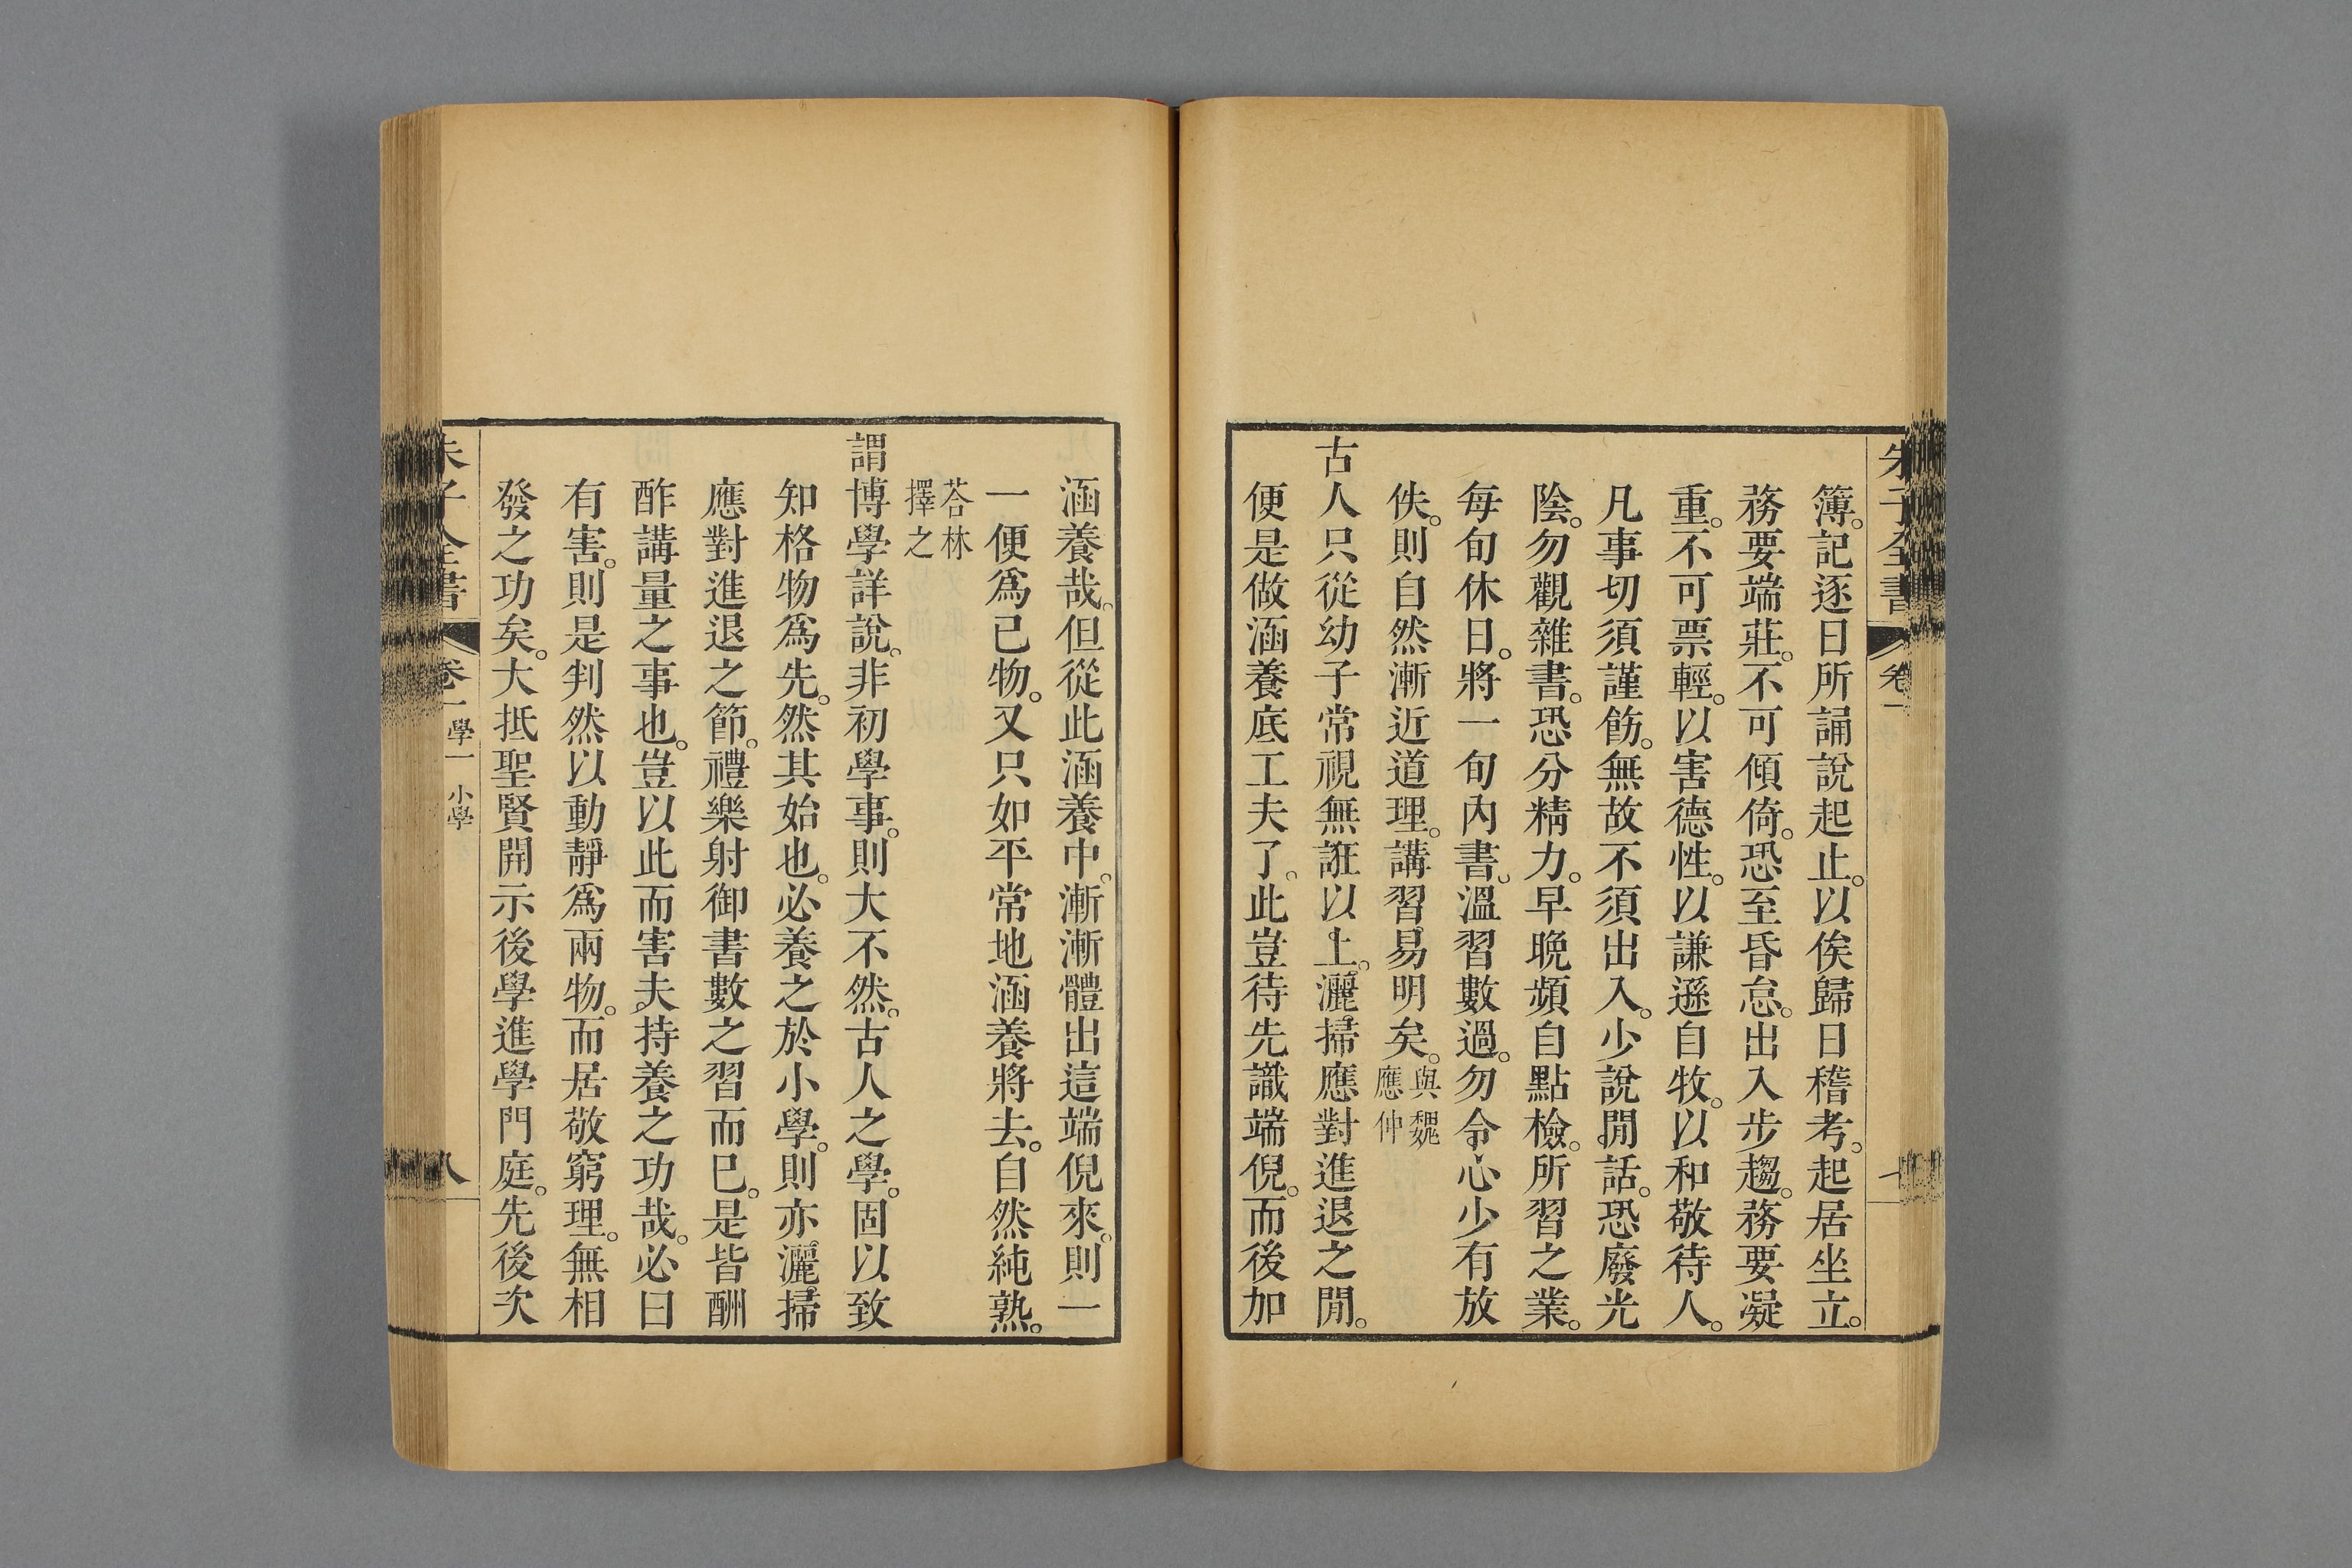 朱子全書 卷一
簿。記逐日所誦說起止。以俟歸日稽考。起居坐立。
務要端莊。不可傾倚。恐至昏怠。出入步趨。務要凝
重。不可票輕。以害德性。以謙遜自牧。以和敬待人。
凡事切須謹飭。無故不須出入。少說閒話。恐廢光
陰。勿觀雜書。恐分精力。早晚頻自點檢。所習之業。
每旬休日。將一旬內書。溫習數過。勿令心少有放
佚。則自然漸近道理。講習易明矣。與魏
應仲
古人只從幼子常視無誑以上。灑掃應對進退之閒。
便是做涵養底工夫了。此豈待先識端倪。而後加
涵養哉。但從此涵養中。漸漸體出這端倪來。則一
一便爲已物。又只如平常地涵養將去。自然純熟。
荅林
擇之
謂博學詳說。非初學事。則大不然。古人之學。固以致
知格物爲先。然其始也。必養之於小學。則亦灑掃
應對進退之節。禮樂射御書數之習而已。是皆酬
酢講量之事也。豈以此而害夫持養之功哉。必曰
有害。則是判然以動靜爲兩物。而居敬窮理。無相
發之功矣。大抵聖賢開示後學進學門庭。先後次
朱子全書 卷一 學一 小學 八